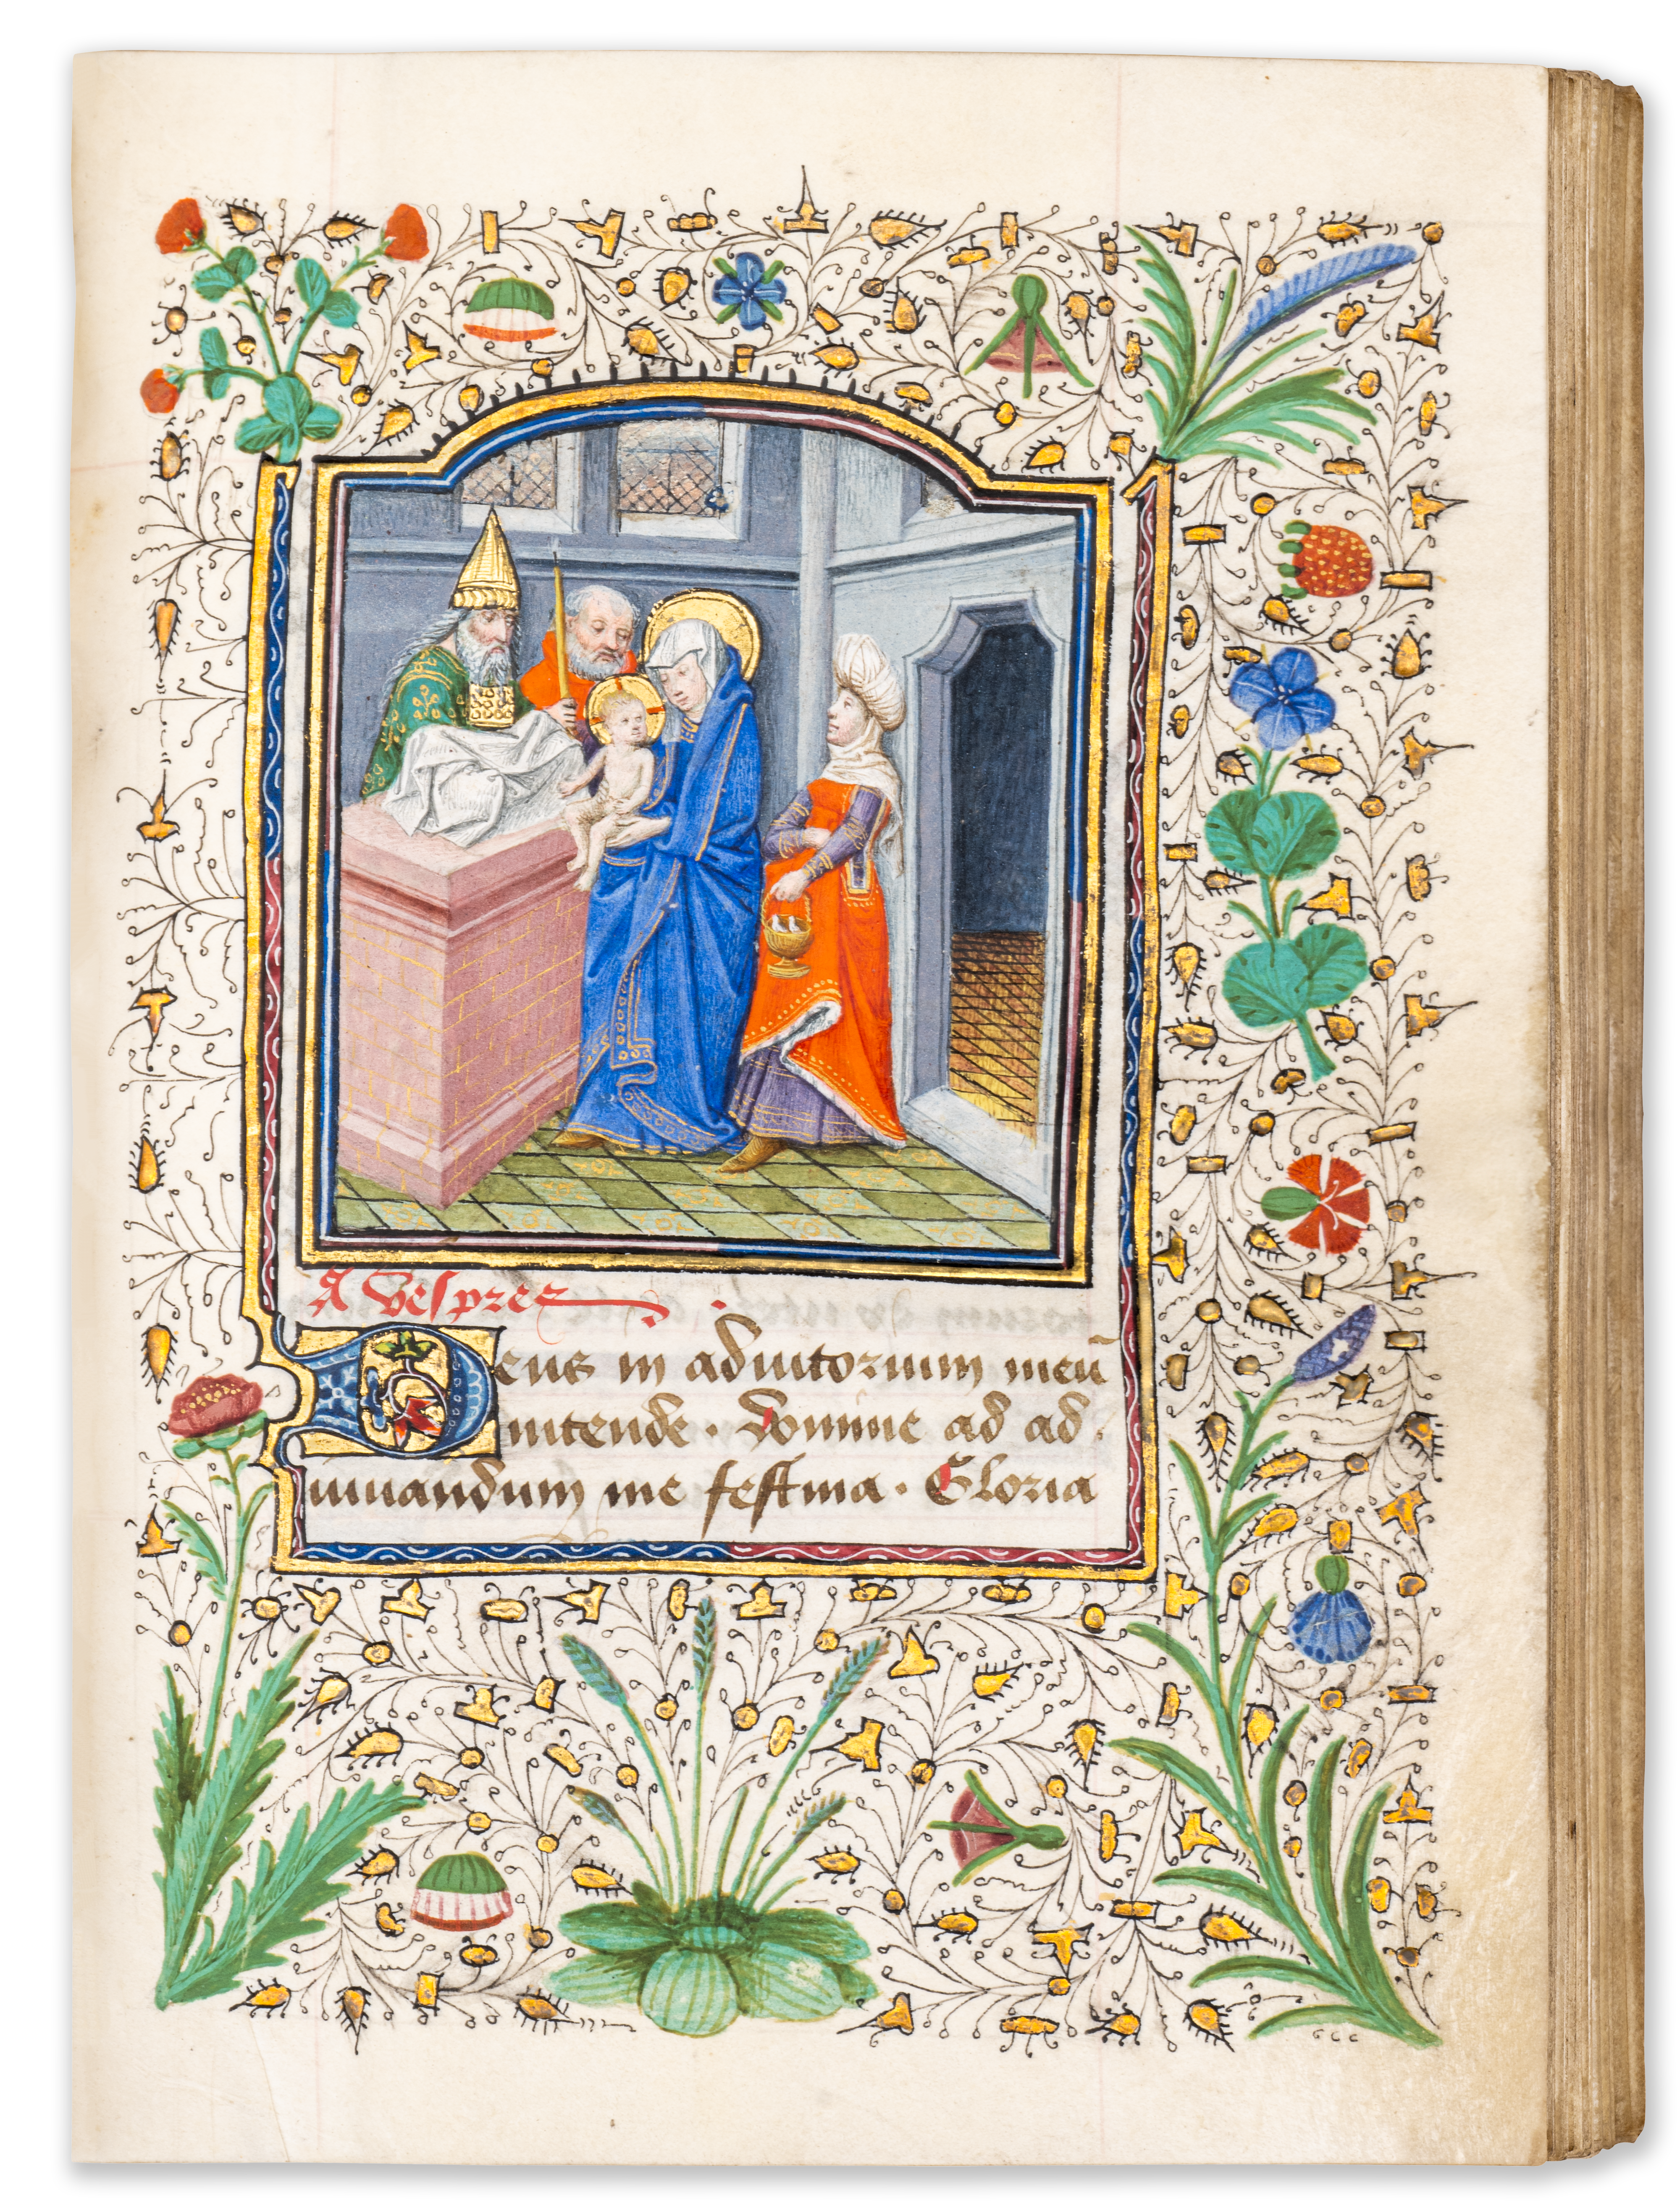 A vespres
Deus in adiutorium meū
intende. Domine ad ad.
iuuandum me festina. Gloria